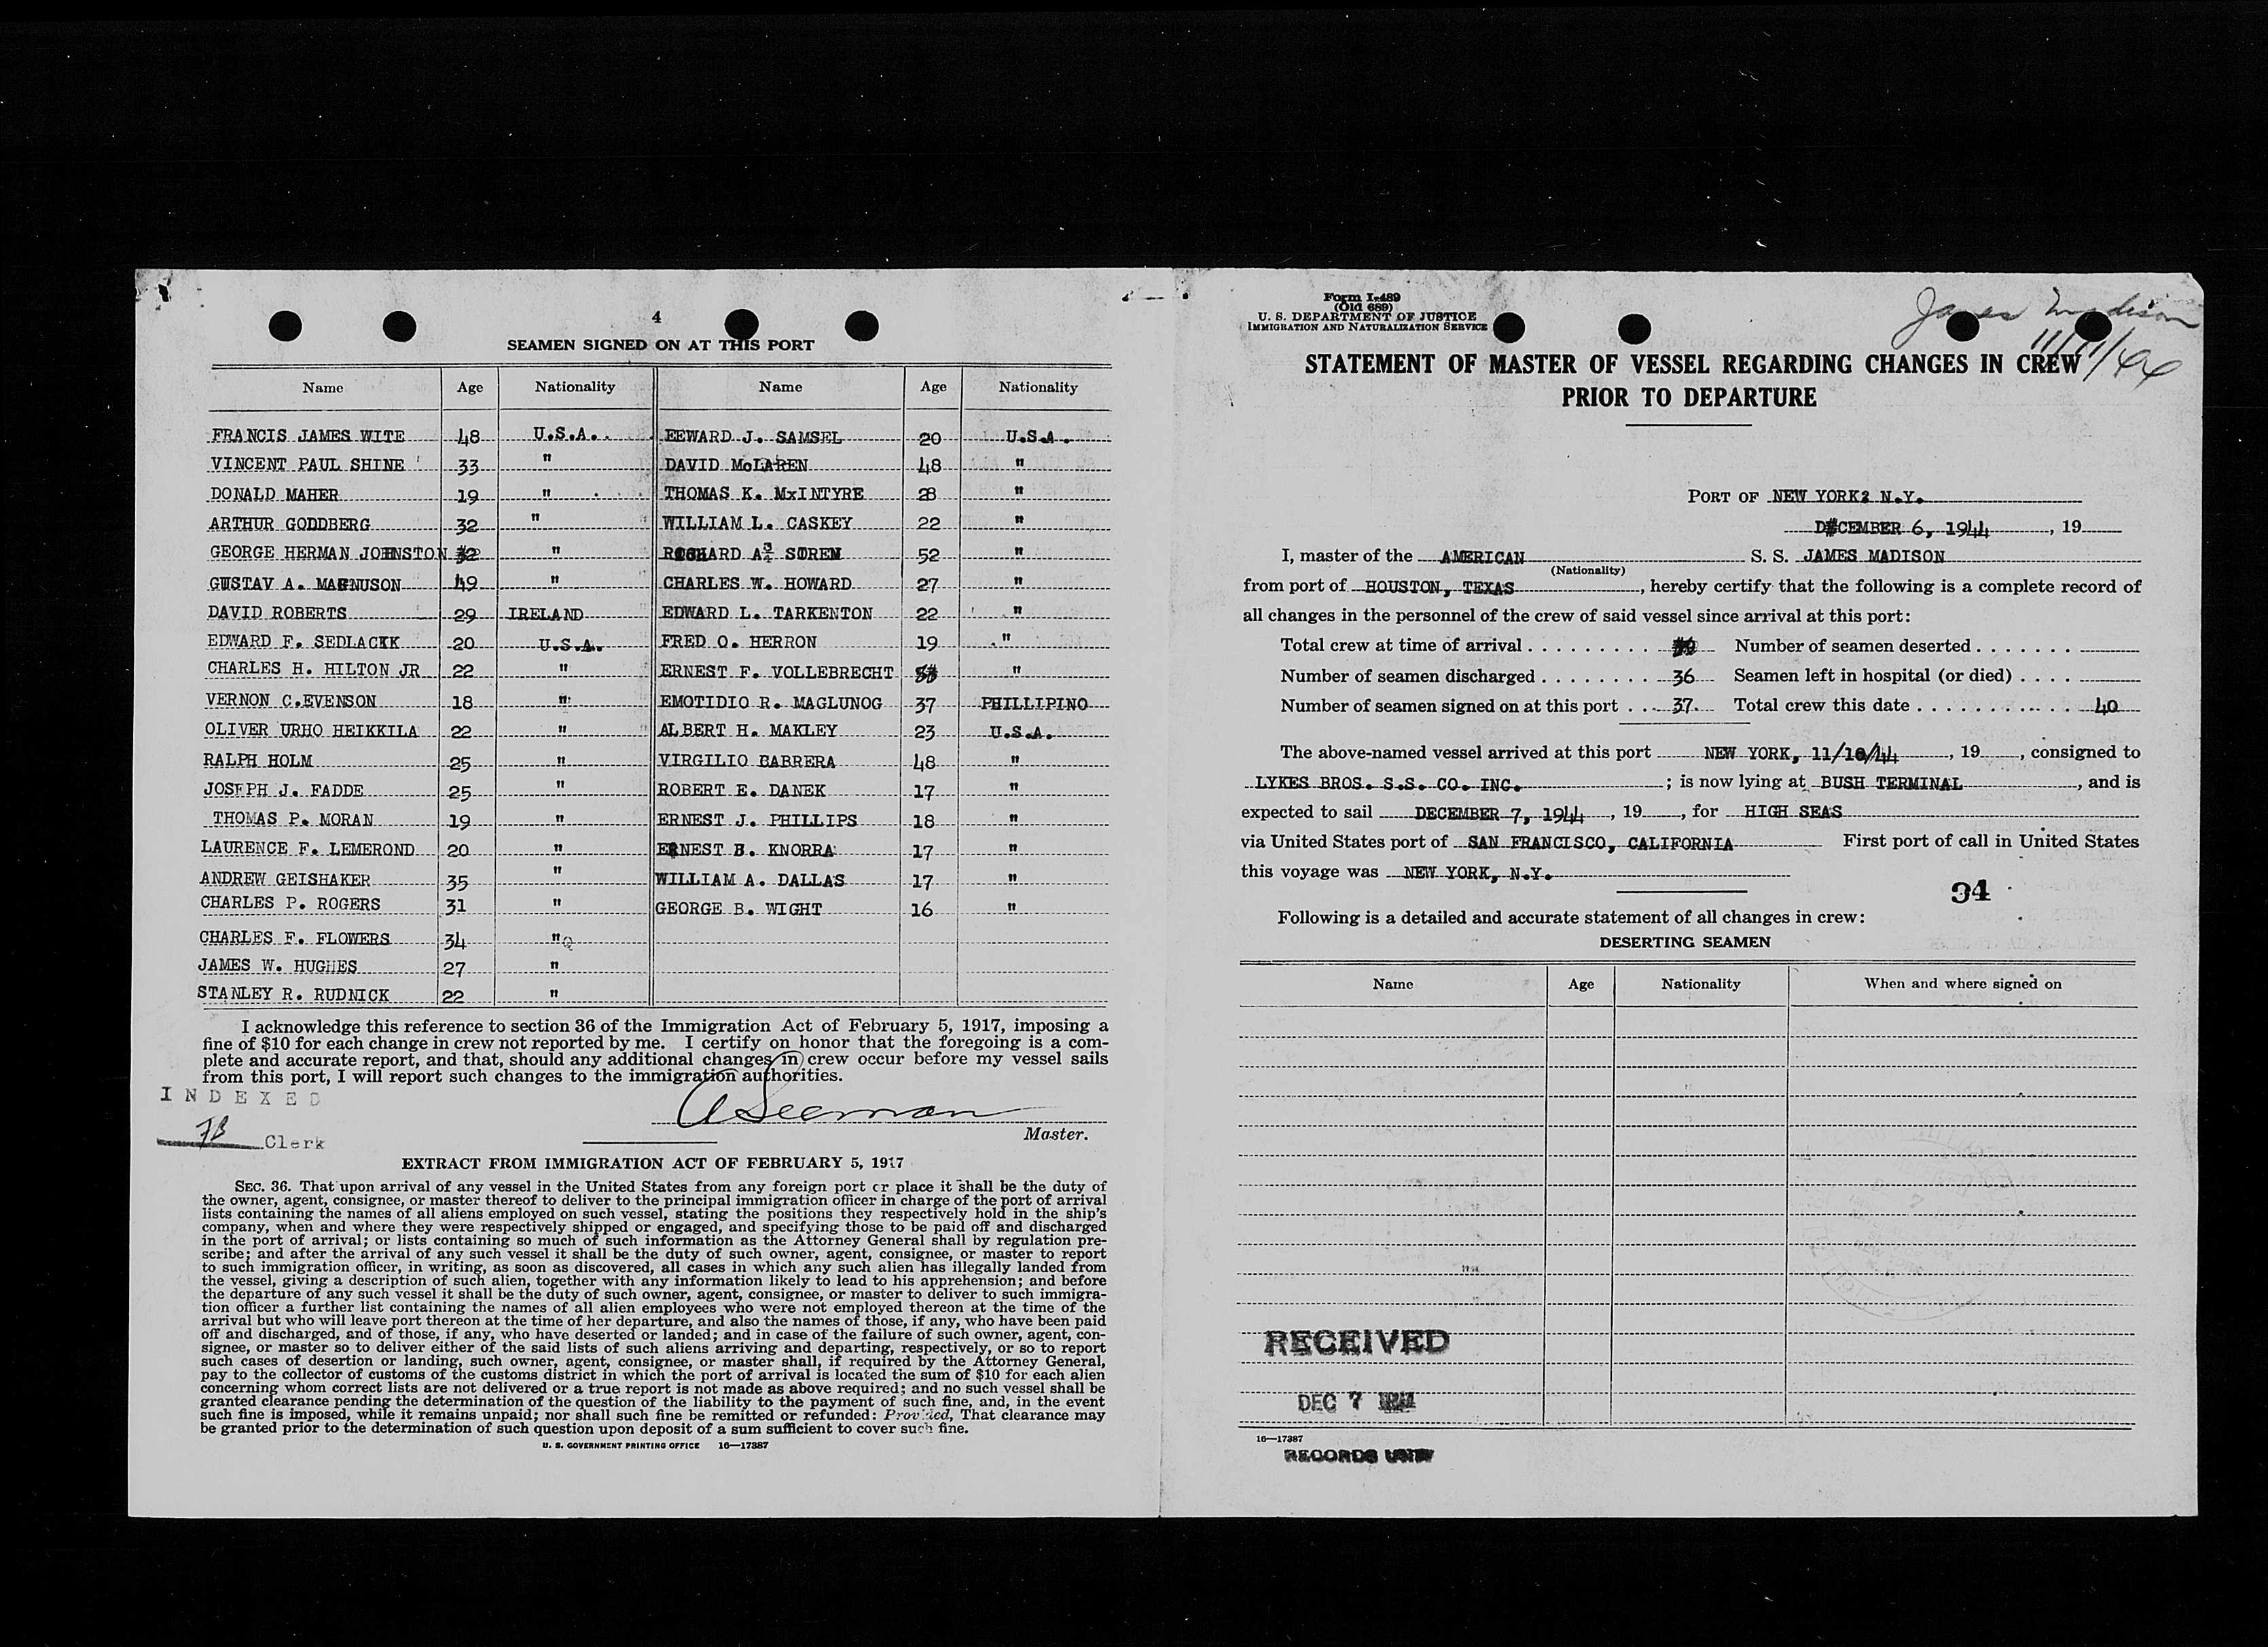 4
SEAMEN SIGNED ON AT THIS PORT
Name Age Nationality Name Age Nationality
FRANCIS JAMES WITE 48 U.S.A. EEWARD J. SAMSEL 20 U.S.A.
VINCENT PAUL SHINE 33 " DAVID McLAREN 48 "
DONALD MAHER 19 " THOMAS K. MxINTYRE 28 "
ARTHUR GODDBERG 32 " WILLIAM L. CASKEY 22 "
GEORGE HERMAN JOHNSTON " 52 "
GUSTAV A. MAGNUSON 49 " CHARLES W. HOWARD 27 "
DAVID ROBERTS 29 IRELAND EDWARD L. TARKENTON 22 "
EDWARD F. SEDLACKK 20 U.S.A. FRED O. HERRON 19 "
CHARLES H. HILTON JR 22 " ERNEST F. VOLLEBRECHT "
VERNON C.EVENSON 18 " EMOTIDIO R. MAGLUNOG 37 PHILLIPINO
OLIVER URHO HEIKKILA 22 " ALBERT H. MAKLEY 23 U.S.A.
RALPH HOLM 25 " VIRGILIO CABRERA 48 "
JOSEPH J. FADDE 25 " ROBERT E. DANEK 17 "
THOMAS P. MORAN 19 " ERNEST J. PHILLIPS 18 "
LAURENCE F. LEMEROND 20 " ERNEST B. KNORRA 17 "
ANDREW GEISHAKER 35 " WILLIAM A. DALLAS 17 "
CHARLES P. ROGERS 31 " GEORGE B. WIGHT 16 "
CHARLES F. FLOWERS 34 "Q
JAMES W. HUGHES 27 "
STANLEY R. RUDNICK 22 "
I acknowledge this reference to section 36 of the Immigration Act of February 5, 1917, imposing a
fine of $10 for each change in crew not reported by me. I certify on honor that the foregoing is a com-
plete and accurate report, and that, should any additional changes in crew occur before my vessel sails
from this port, I will report such changes to the immigration authorities.
INDEXED
A Seeman
JB Clerk
Master.
EXTRACT FROM IMMIGRATION ACT OF FEBRUARY 5, 1917
SEC. 36. That upon arrival of any vessel in the United States from any foreign port or place it shall be the duty of
the owner, agent, consignee, or master thereof to deliver to the principal immigration officer in charge of the port of arrival
lists containing the names of all aliens employed on such vessel, stating the positions they respectively hold in the ship's
company, when and where they were respectively shipped or engaged, and specifying those to be paid off and discharged
in the port of arrival; or lists containing so much of such information as the Attorney General shall by regulation pre-
scribe; and after the arrival of any such vessel it shall be the duty of such owner, agent, consignee, or master to report
to such immigration officer, in writing, as soon as discovered, all cases in which any such alien has illegally landed from
the vessel, giving a description of such alien, together with any information likely to lead to his apprehension; and before
the departure of any such vessel it shall be the duty of such owner, agent, consignee, or master to deliver to such immigra-
tion officer a further list containing the names of all alien employees who were not employed thereon at the time of the
arrival but who will leave port thereon at the time of her departure, and also the names of those, if any, who have been paid
off and discharged, and of those, if any, who have deserted or landed; and in case of the failure of such owner, agent, con-
signee, or master so to deliver either of the said lists of such aliens arriving and departing, respectively, or so to report
such cases of desertion or landing, such owner, agent, consignee, or master shall, if required by the Attorney General,
pay to the collector of customs of the customs district in which the port of arrival is located the sum of $10 for each alien
concerning whom correct lists are not delivered or a true report is not made as above required; and no such vessel shall be
granted clearance pending the determination of the question of the liability to the payment of such fine, and, in the event
such fine is imposed, while it remains unpaid; nor shall such fine be remitted or refunded: Provided, That clearance may
be granted prior to the determination of such question upon deposit of a sum sufficient to cover such fine.
U. S. GOVERNMENT PRINTING OFFICE 16—17387
Form I-489
(Old 689)
U. S. DEPARTMENT OF JUSTICE
IMMIGRATION AND NATURALIZATION SERVICE
James Madison
11/11/44
STATEMENT OF MASTER OF VESSEL REGARDING CHANGES IN CREW
PRIOR TO DEPARTURE
PORT OF NEW YORK2 N.Y.
DECEMBER 6, 1944, 19
I, master of the AMERICAN S. S. JAMES MADISON
(Nationality)
from port of HOUSTON, TEXAS, hereby certify that the following is a complete record of
all changes in the personnel of the crew of said vessel since arrival at this port:
Total crew at time of arrival . . . . . . . . . Number of seamen deserted . . . . . . .
Number of seamen discharged . . . . . . . . 36 Seamen left in hospital (or died) . . . .
Number of seamen signed on at this port . . . 37 Total crew this date . . . . . . . . . . . 40
The above-named vessel arrived at this port NEW YORK, 11/10/44, 19, consigned to
LYKES BROS. S.S. CO. INC. ; is now lying at BUSH TERMINAL, and is
expected to sail DECEMBER 7, 1944, 19, for HIGH SEAS
via United States port of SAN FRANCISCO, CALIFORNIA First port of call in United States
this voyage was NEW YORK, N.Y.
94
Following is a detailed and accurate statement of all changes in crew:
DESERTING SEAMEN
Name Age Nationality When and where signed on
RECEIVED
DEC 7 1944
16—17387
RECORDS UNIT